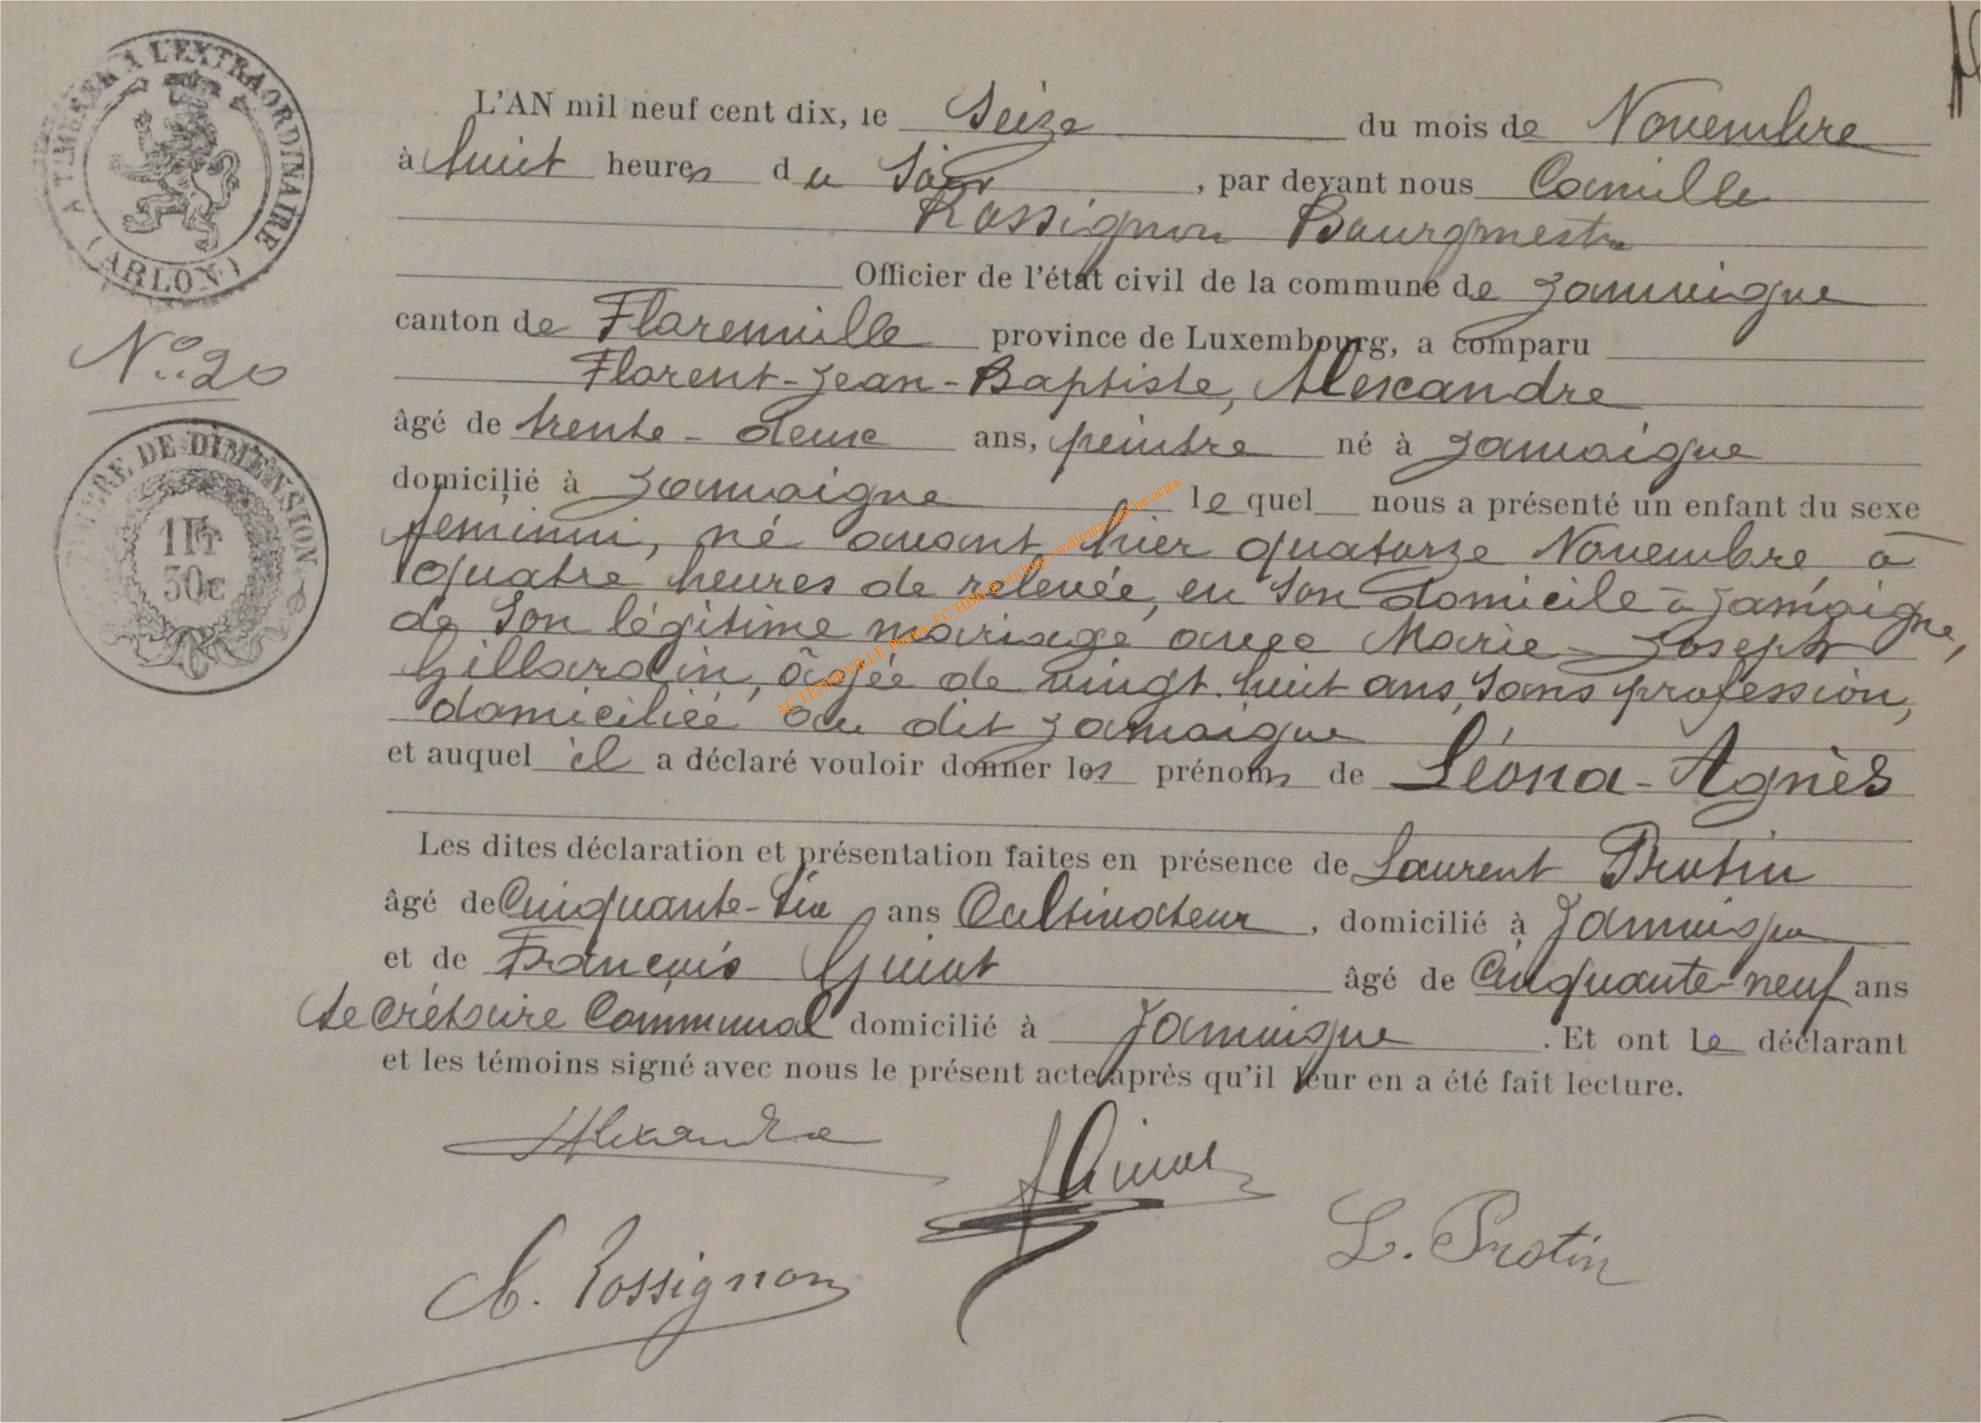 A TIMBRER A L'EXTRAORDINAIRE
(ARLON)
L'AN mil neuf cent dix, le Seize du mois de Novembre
à huit heures du Soir, par devant nous Camille
Rossignon Bourgmestre
Officier de l'état civil de la commune de Jamoigne
canton de Florenville province de Luxembourg, a comparu
N° 20
Florent-Jean-Baptiste, Alexandre
âgé de trente-deux ans, peintre né à Jamoigne
domicilié à Jamoigne lequel nous a présenté un enfant du sexe
TIMBRE DE DIMENSION
1Fr
30c
féminin, né avant hier quatorze Novembre, à
quatre heures de relevée, en son domicile à Jamoigne,
de son légitime mariage avec Marie-Joseph
Gillardin, âgée de vingt-huit ans, sans profession,
domiciliée au dit Jamoigne
et auquel il a déclaré vouloir donner les prénoms de Léona-Agnès
Les dites déclaration et présentation faites en présence de Laurent Protin
âgé de Cinquante-six ans Cultivateur, domicilié à Jamoigne
et de François Guiot âgé de Cinquante-neuf ans
Secrétaire Communal domicilié à Jamoigne. Et ont le déclarant
et les témoins signé avec nous le présent acte après qu'il leur en a été fait lecture.
Alexandre
F Guiot
L. Protin
C. Rossignon